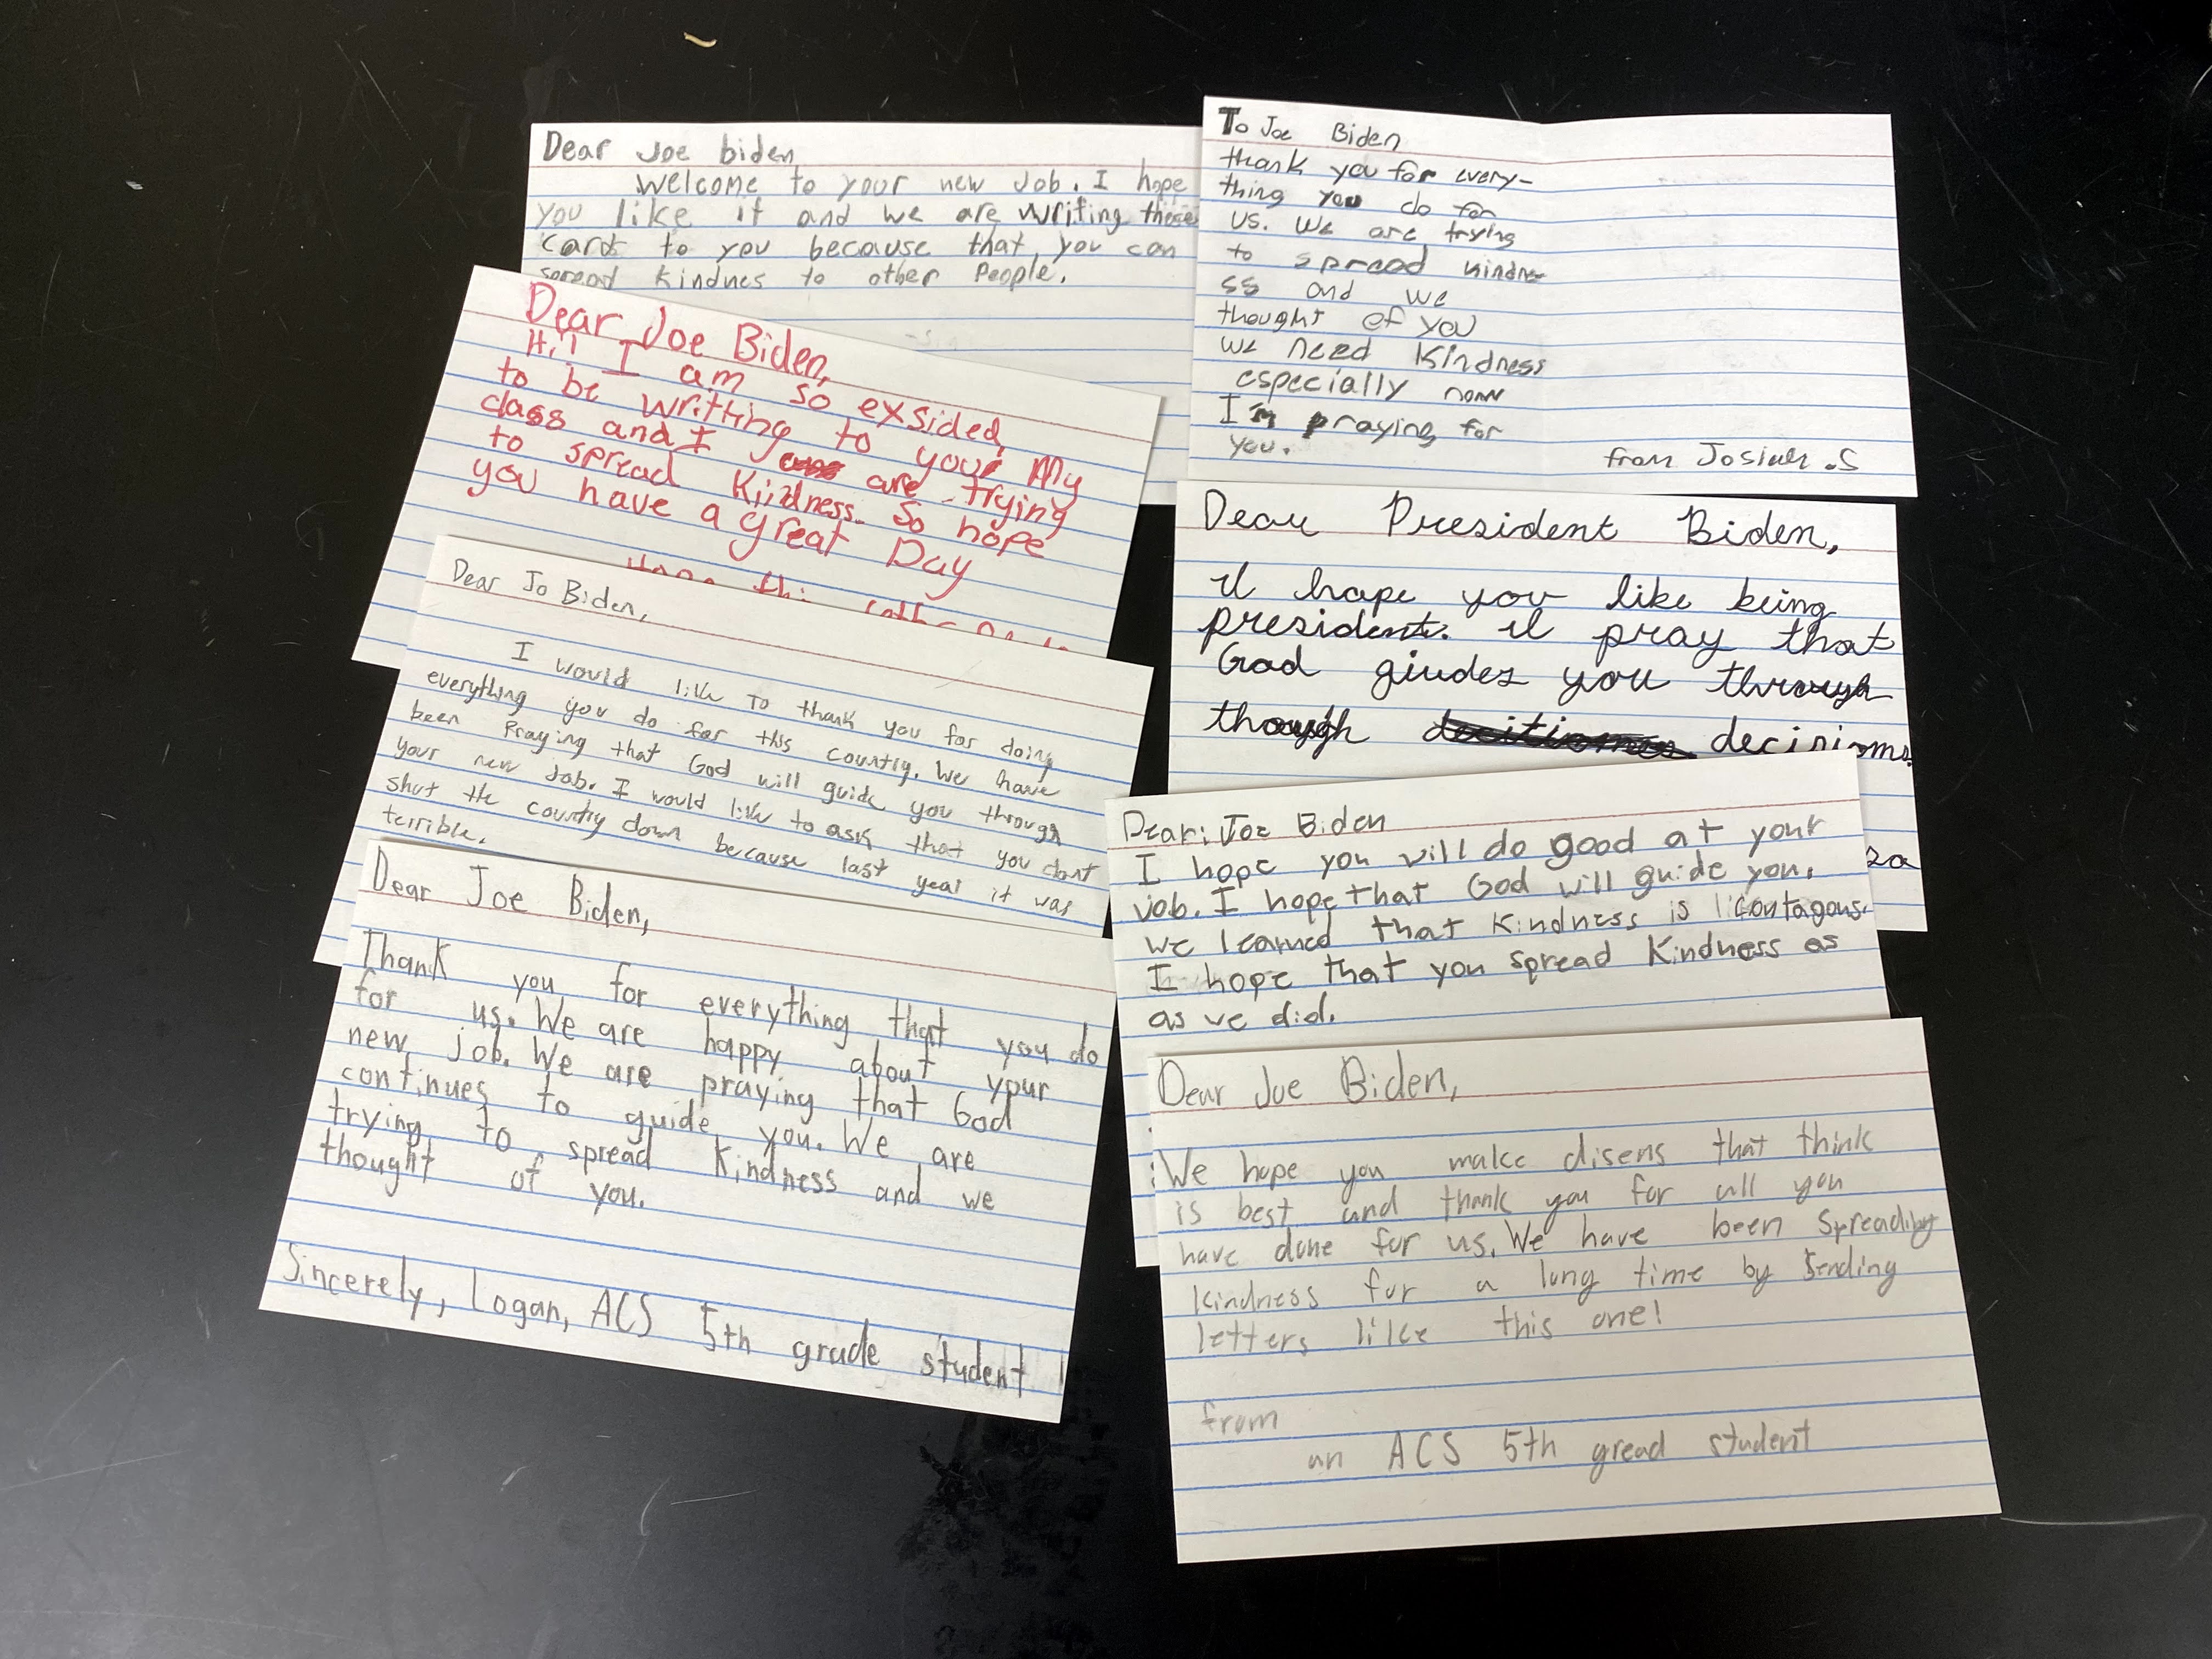 Dear Joe biden
Welcome to your new Job. I hope
you like it and we are writing these
cards to you because that you can
spread kindnes to other People.
To Joe Biden
thank you for every-
thing you do for
us. We are trying
to spread kindne
ss and we
thought of you
we need kindness
especially now
I'm praying for
you.
from Josiah .S
Dear Joe Biden,
Hi! I am so exsided
to be writting to you! My
class and I are trying
to spread Kindness. So hope
you have a great Day
Dear President Biden,
I hope you like being
president. I pray that
God giudes you through
though decisions.
za
Dear Jo Biden,
I would like To thank you for doing
everything you do for this country. We have
been Praying that God will guide you through
your new Job. I would like to ask that you dont
shut the country down because last year it was
terrible.
Dear: Joe Biden
I hope you will do good at your
job. I hope that God will guide you.
we learned that kindness is contagous.
I hope that you spread kindness as
as we did.
Dear Joe Biden,
Thank you for everything that you do
for us. We are happy about your
new job. We are praying that God
continues to guide you. We are
trying to spread kindness and we
thought of you.
Sincerely, Logan, ACS 5th grade student
Dear Joe Biden,
We hope you make disens that think
is best and thank you for all you
have done for us. We have been Spreading
kindness for a long time by Sending
letters like this one!
from
an ACS 5th gread student